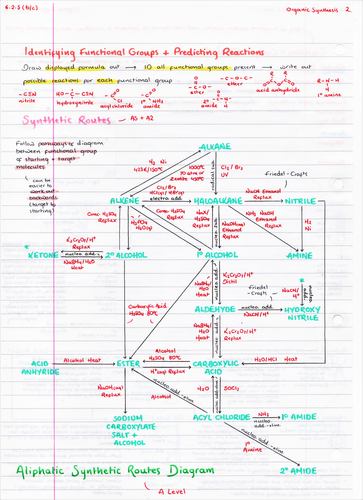 6.2.5 (b/c)
Organic Synthesis 2
Identifying Functional Groups + Predicting Reactions
Draw displayed formula out → ID all functional groups present → Write out
possible reactions for each functional group
-C≡N
nitrile
HO-C-C≡N
hydroxynitrile
acylchloride
1° amide
ester
-C-O-C-
ether
2° amide
acid anhydride
R-N-H
1° amine
Synthetic Routes - AS + A2
Follow pathways in diagram
between functional group
of starting + target
molecules
↳ can be
easier to
work out
backwards
(target to
starting)
ALKANE
H2 Ni
423K/150°C
Cl2/Br2
UV
radical sub
ALKENE
electro add
HALOALKANE
NaCN Ethanol
Reflux
NITRILE
Friedel-Crafts
Conc. H2SO4
Reflux
H3PO4
H2O(g)
Conc. H2SO4
Reflux
NaX/
H2SO4
Reflux
nuc sub
NaOH(aq)
Ethanol
Reflux
NH3 NaOH
Ethanol
Reflux
H2
Ni
KETONE
K2Cr2O7/H+
Reflux
NaBH4/H2O
Heat
2° ALCOHOL
1° ALCOHOL
AMINE
NaBH4/
H2O
Heat
K2Cr2O7/H+
Distil
Friedel
-Crafts
NaCN/
H+
ALDEHYDE
nucleo add
NaCN/H+
HYDROXY
NITRILE
Carboxylic Acid
H2SO4 80°C
K2Cr2O7/H+
Reflux
ACID
ANHYRIDE
Alcohol Heat
ESTER
Alcohol
H2SO4 80°C
H+(aq) Reflux
CARBOXYLIC
ACID
H2O/HCl Heat
NaOH(aq)
Reflux
Alcohol
H2O
SOCl2
SODIUM
CARBOXYLATE
SALT +
ALCOHOL
ACYL CHLORIDE
NH3
1° AMIDE
1°
Amine
2° AMIDE
Aliphatic Synthetic Routes Diagram
↳ A Level